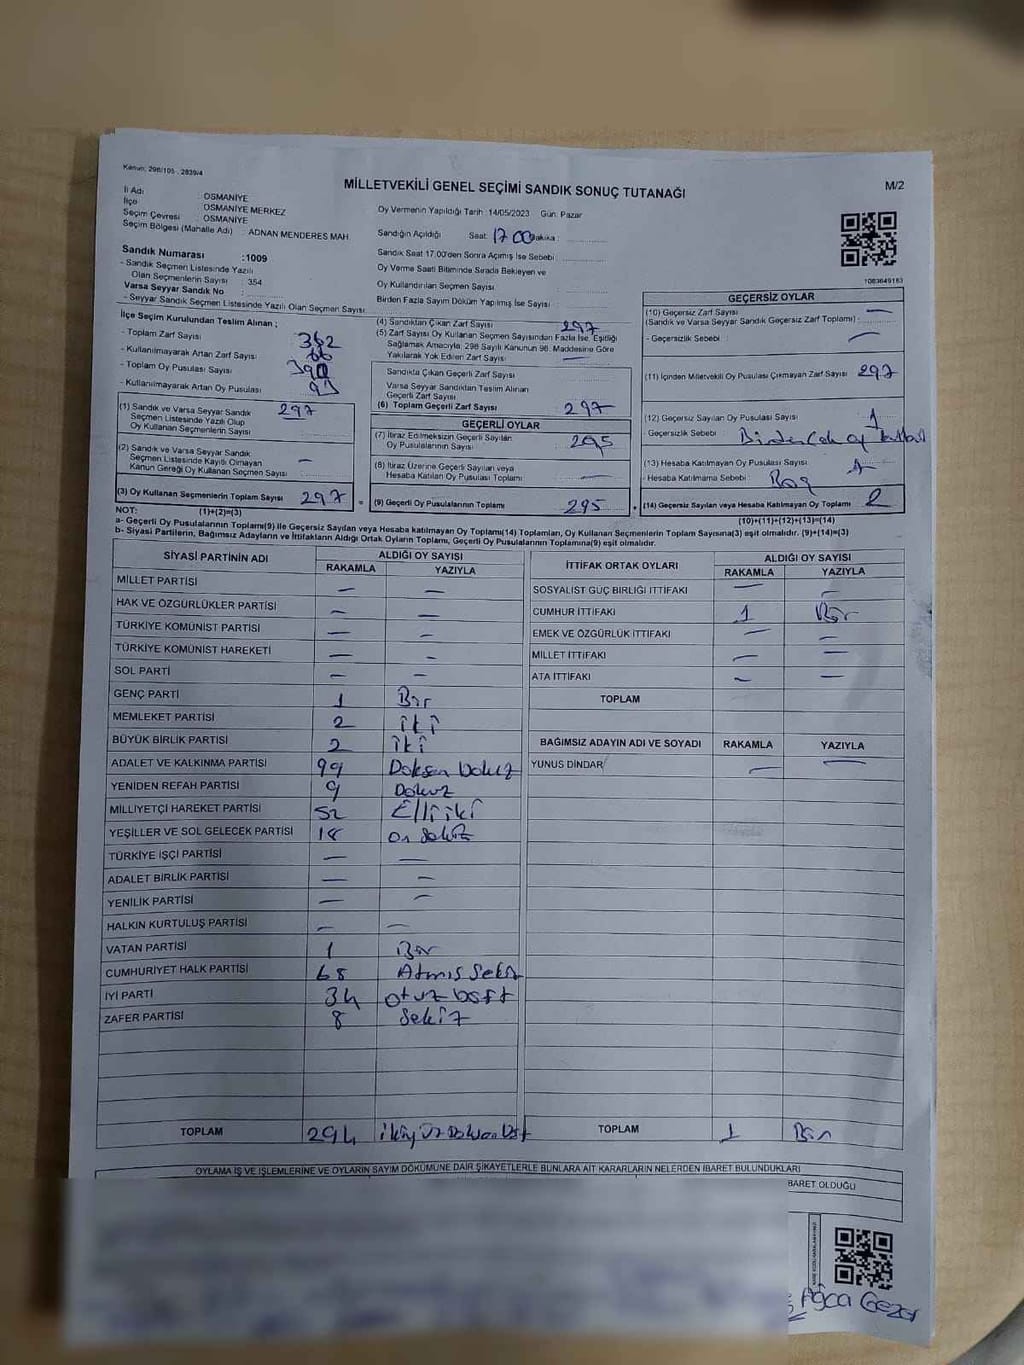 Kanun: 298/105 , 2839/4
MİLLETVEKİLİ GENEL SEÇİMİ SANDIK SONUÇ TUTANAĞI
M/2
İl Adı : OSMANİYE
İlçe : OSMANİYE MERKEZ
Seçim Çevresi : OSMANİYE
Seçim Bölgesi (Mahalle Adı) : ADNAN MENDERES MAH.
Oy Vermenin Yapıldığı Tarih :14/05/2023 Gün: Pazar
Sandığın Açıldığı Saat: 17 00 Dakika :
Sandık Numarası :1009
- Sandık Seçmen Listesinde Yazılı
Olan Seçmenlerin Sayısı : 354
Varsa Seyyar Sandık No :
- Seyyar Sandık Seçmen Listesinde Yazılı Olan Seçmen Sayısı
Sandık Saat 17.00'den Sonra Açılmış İse Sebebi :
Oy Verme Saati Bitiminde Sırada Bekleyen ve
Oy Kullandırılan Seçmen Sayısı :
Birden Fazla Sayım Döküm Yapılmış İse Sayısı :
1083649183
İlçe Seçim Kurulundan Teslim Alınan ;
- Toplam Zarf Sayısı : 362
- Kullanılmayarak Artan Zarf Sayısı :
- Toplam Oy Pusulası Sayısı :
- Kullanılmayarak Artan Oy Pusulası :
(1) Sandık ve Varsa Seyyar Sandık 297
Seçmen Listesinde Yazılı Olup
Oy Kullanan Seçmenlerin Sayısı
(2) Sandık ve Varsa Seyyar Sandık
Seçmen Listesinde Kayıtlı Olmayan –
Kanun Gereği Oy Kullanan Seçmen Sayısı :
(3) Oy Kullanan Seçmenlerin Toplam Sayısı 297 =
(4) Sandıktan Çıkan Zarf Sayısı 297
(5) Zarf Sayısı Oy Kullanan Seçmen Sayısından Fazla İse, Eşitliği
Sağlamak Amacıyla, 298 Sayılı Kanunun 98. Maddesine Göre
Yakılarak Yok Edilen Zarf Sayısı : –
Sandıkta Çıkan Geçerli Zarf Sayısı :
Varsa Seyyar Sandıktan Teslim Alınan
Geçerli Zarf Sayısı :
(6) Toplam Geçerli Zarf Sayısı : 297
GEÇERLİ OYLAR
(7) İtiraz Edilmeksizin Geçerli Sayılan
Oy Pusulalarının Sayısı : 295
(8) İtiraz Üzerine Geçerli Sayılan veya
Hesaba Katılan Oy Pusulası Toplamı : –
(9) Geçerli Oy Pusulalarının Toplamı : 295 +
GEÇERSİZ OYLAR
(10) Geçersiz Zarf Sayısı –
(Sandık ve Varsa Seyyar Sandık Geçersiz Zarf Toplamı) :
- Geçersizlik Sebebi : –
(11) İçinden Milletvekili Oy Pusulası Çıkmayan Zarf Sayısı 297
(12) Geçersiz Sayılan Oy Pusulası Sayısı : 1
- Geçersizlik Sebebi : Birden Çok oy
(13) Hesaba Katılmayan Oy Pusulası Sayısı : 1
- Hesaba Katılmama Sebebi : Boş
(14) Geçersiz Sayılan veya Hesaba Katılmayan Oy Toplamı 2
NOT: (1)+(2)=(3)
(10)+(11)+(12)+(13)=(14)
a- Geçerli Oy Pusulalarının Toplamı(9) ile Geçersiz Sayılan veya Hesaba katılmayan Oy Toplamı(14) Toplamları, Oy Kullanan Seçmenlerin Toplam Sayısına(3) eşit olmalıdır. (9)+(14)=(3)
b- Siyasi Partilerin, Bağımsız Adayların ve İttifakların Aldığı Ortak Oyların Toplamı, Geçerli Oy Pusulalarının Toplamına(9) eşit olmalıdır.
SİYASİ PARTİNİN ADI ALDIĞI OY SAYISI
RAKAMLA YAZIYLA
MİLLET PARTİSİ – –
HAK VE ÖZGÜRLÜKLER PARTİSİ – –
TÜRKİYE KOMÜNİST PARTİSİ – –
TÜRKİYE KOMÜNİST HAREKETİ – –
SOL PARTİ – –
GENÇ PARTİ 1 Bir
MEMLEKET PARTİSİ 2 iki
BÜYÜK BİRLİK PARTİSİ 2 iki
ADALET VE KALKINMA PARTİSİ 99 Doksan Dokuz
YENİDEN REFAH PARTİSİ 9 Dokuz
MİLLİYETÇİ HAREKET PARTİSİ 52 Elli iki
YEŞİLLER VE SOL GELECEK PARTİSİ 18 on Sekiz
TÜRKİYE İŞÇİ PARTİSİ – –
ADALET BİRLİK PARTİSİ – –
YENİLİK PARTİSİ – –
HALKIN KURTULUŞ PARTİSİ – –
VATAN PARTİSİ 1 Bir
CUMHURİYET HALK PARTİSİ 68 Atmış Sekiz
İYİ PARTİ 34 otuz dört
ZAFER PARTİSİ 8 Sekiz
TOPLAM 294 ikiyüz Doksan Dört
İTTİFAK ORTAK OYLARI ALDIĞI OY SAYISI
RAKAMLA YAZIYLA
SOSYALİST GÜÇ BİRLİĞİ İTTİFAKI – –
CUMHUR İTTİFAKI 1 Bir
EMEK VE ÖZGÜRLÜK İTTİFAKI – –
MİLLET İTTİFAKI – –
ATA İTTİFAKI – –
TOPLAM
BAĞIMSIZ ADAYIN ADI VE SOYADI RAKAMLA YAZIYLA
YUNUS DİNDAR – –
TOPLAM 1 Bir
OYLAMA İŞ VE İŞLEMLERİNE VE OYLARIN SAYIM DÖKÜMÜNE DAİR ŞİKAYETLERLE BUNLARA AİT KARARLARIN NELERDEN İBARET BULUNDUKLARI
BARET OLDUĞU
Ağca Gezer